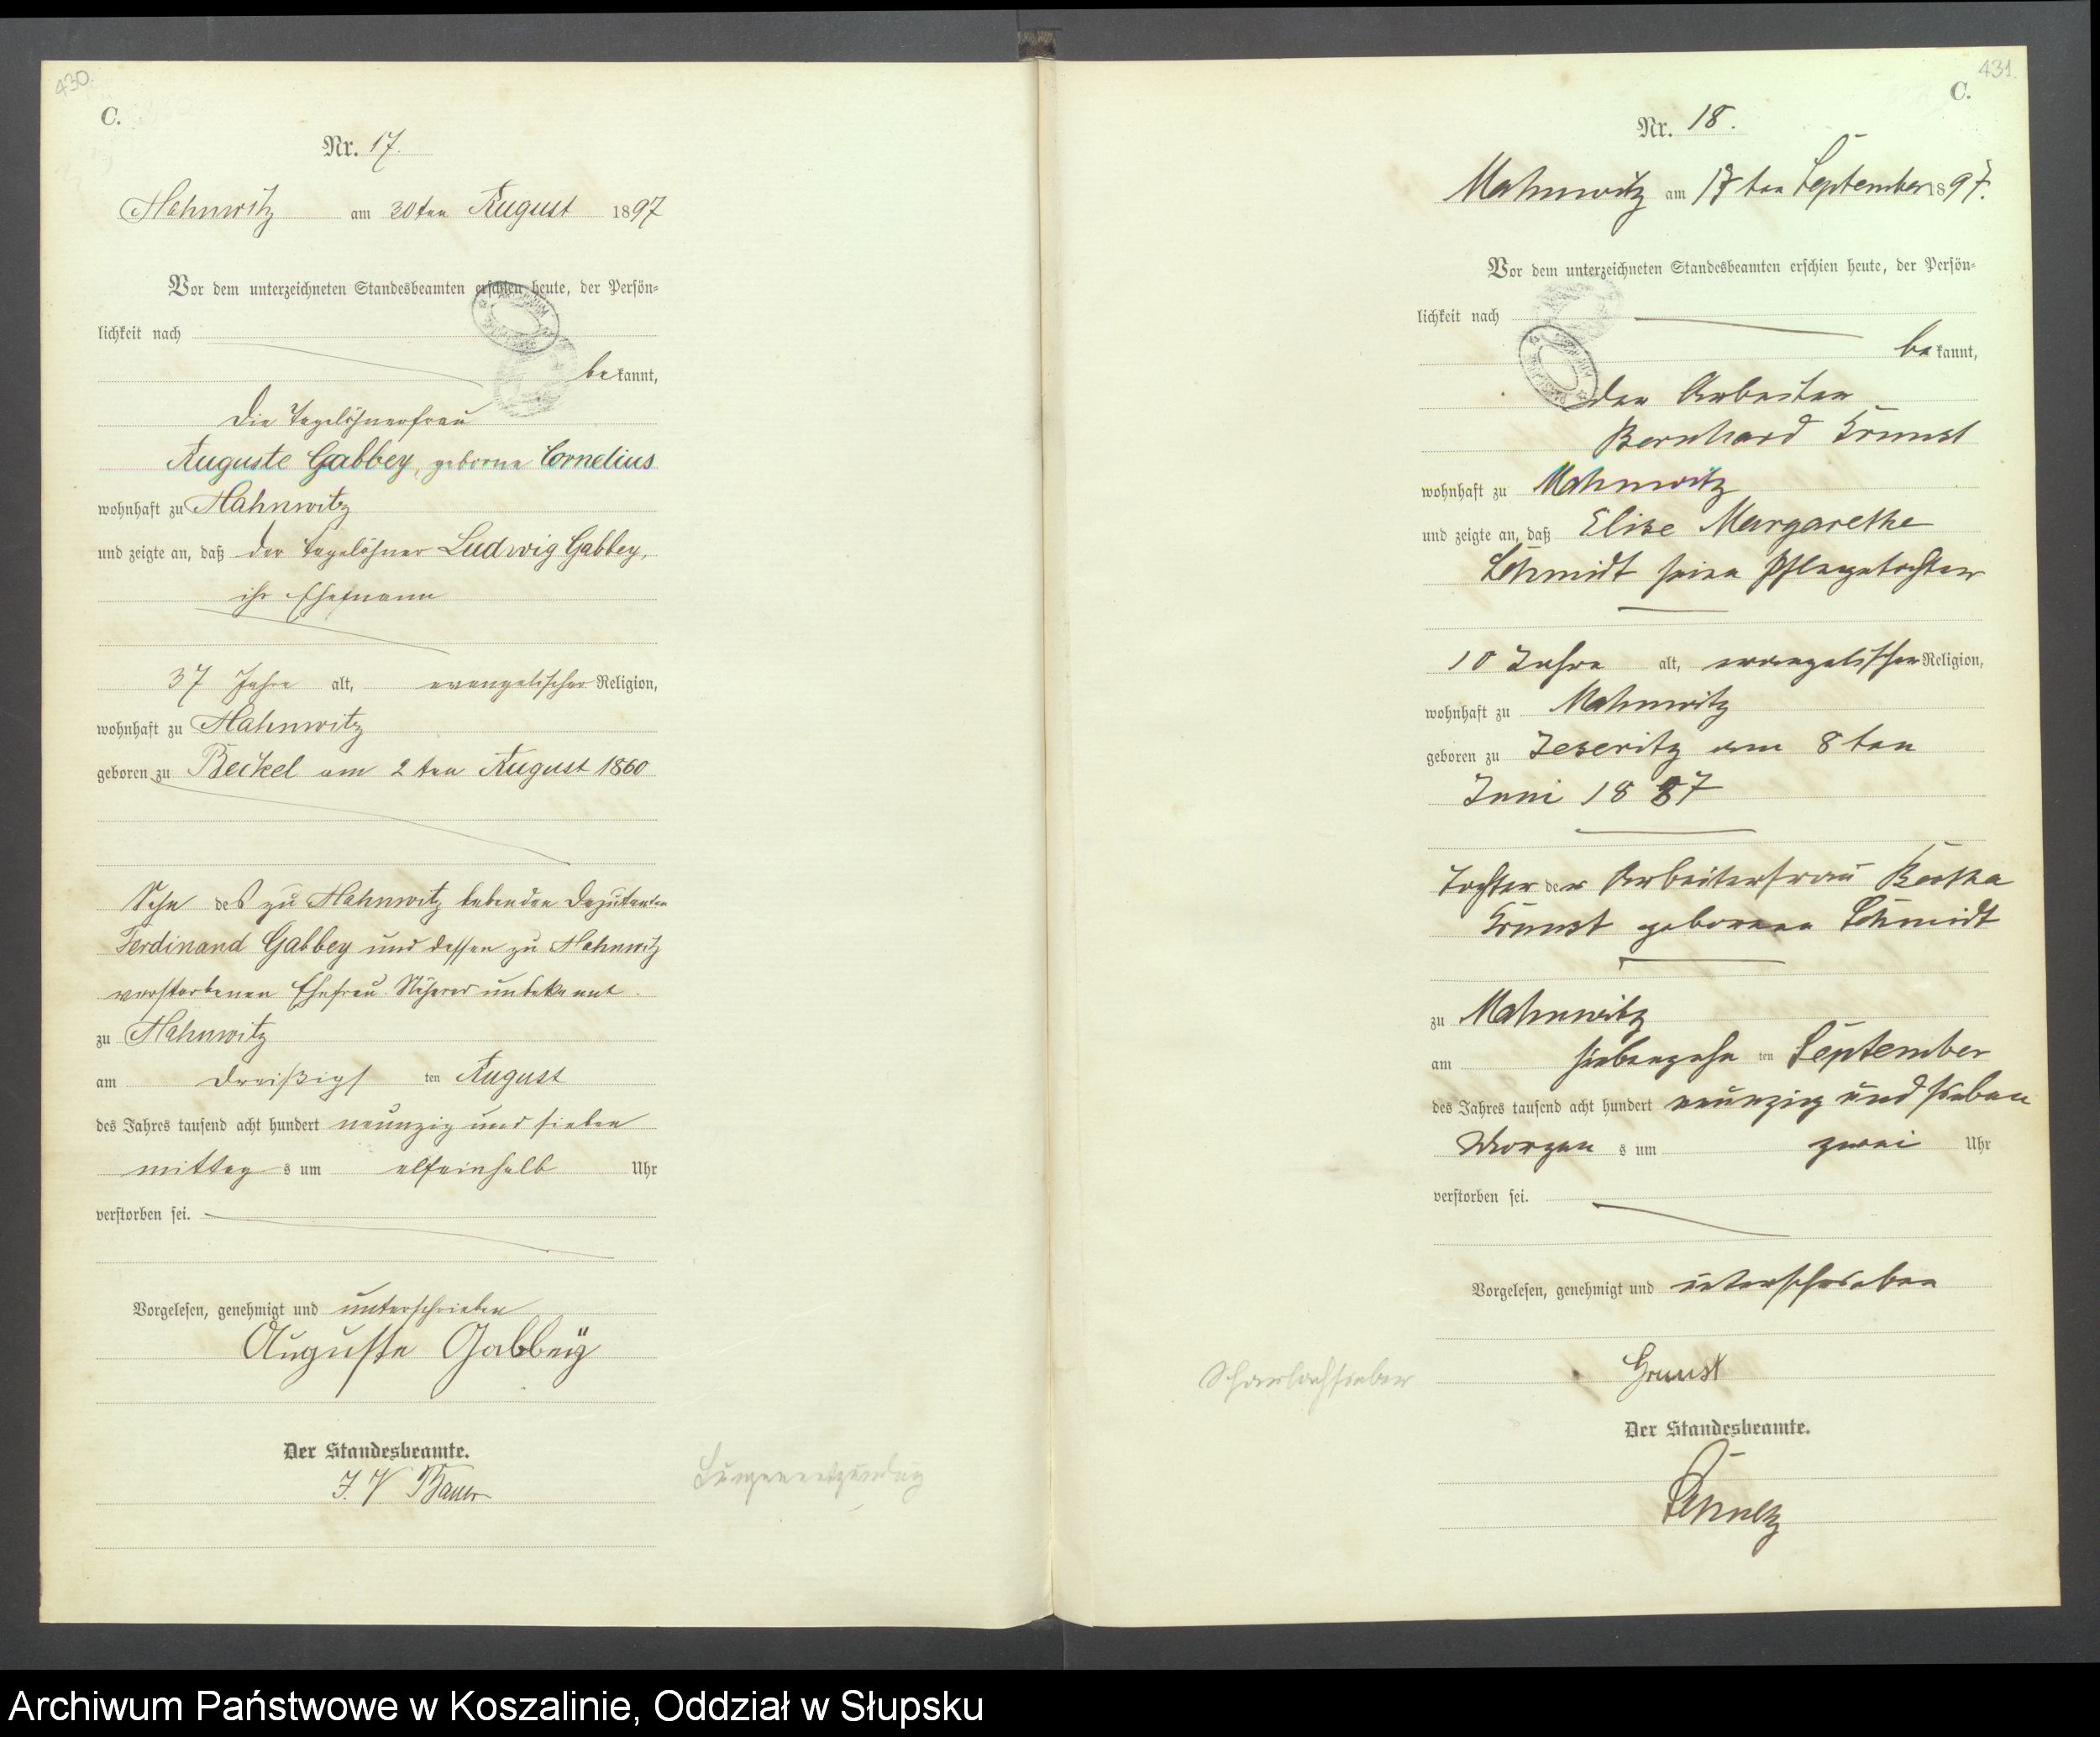 430.
C.
Nr. 17.
Mahnwitz am 30ten August 1897
Vor dem unterzeichneten Standesbeamten erschien heute, der Persön-
lichkeit nach
bekannt,
die Tagelöhnerfrau
Auguste Gabbey, geborne Cornelius
wohnhaft zu Mahnwitz
und zeigte an, daß der Tagelöhner Ludwig Gabbey,
ihr Ehemann
37 Jahre alt, evangelischer Religion,
wohnhaft zu Mahnwitz
geboren zu Beckel am 2ten August 1860
Sohn des zu Mahnwitz lebenden Deputanten
Ferdinand Gabbey und dessen zu Mahnwitz
verstorbenen Ehefrau. Näheres unbekannt.
zu Mahnwitz
am dreißigsten August
des Jahres tausend acht hundert neunzig und sieben
mittags um elfeinhalb Uhr
verstorben sei.
Vorgelesen, genehmigt und unterschrieben
Auguste Gabbeÿ
Der Standesbeamte.
J. V. Bauer
Lungenentzündung
431.
C.
Nr. 18.
Mahnwitz am 17ten September 1897.
Vor dem unterzeichneten Standesbeamten erschien heute, der Persön-
lichkeit nach
bekannt,
der Arbeiter
Bernhard Grunst
wohnhaft zu Mahnwitz
und zeigte an, daß Elise Margarethe
Schmidt seine Pflegetochter
10 Jahre alt, evangelischer Religion,
wohnhaft zu Mahnwitz
geboren zu Jeseritz am 8ten
Juni 1887
Tochter der Arbeiterfrau Bertha
Grunst geborene Schmidt
zu Mahnwitz
am siebenzehnten September
des Jahres tausend acht hundert neunzig und sieben
Morgens um zwei Uhr
verstorben sei.
Vorgelesen, genehmigt und unterschrieben
Grunst
Scharlachfieber
Der Standesbeamte.
Schultz
Archiwum Państwowe w Koszalinie, Oddział w Słupsku